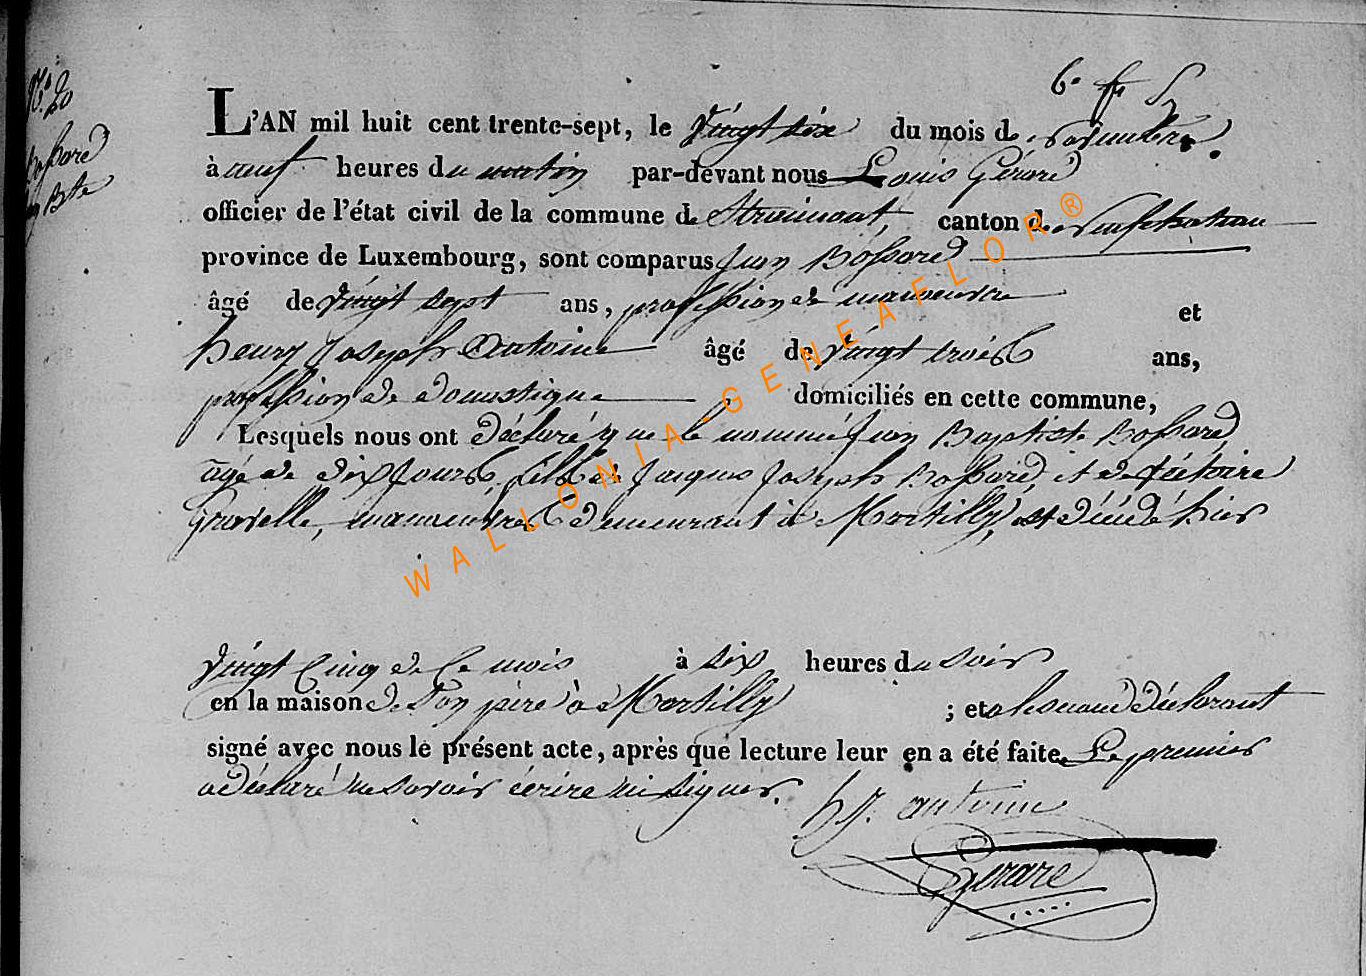 6. f. S
N° 20
Bossard
Jn Bte
L'AN mil huit cent trente-sept, le vingt six du mois de novembre,
à neuf heures du matin par-devant nous Louis Gérard
officier de l'état civil de la commune de Straimont, canton de Neufchateau
province de Luxembourg, sont comparus Jean Bossard
âgé de vingt sept ans, profession de manoeuvre et
henry Joseph Antoine âgé de vingt trois ans,
profession de domestique, domiciliés en cette commune,
Lesquels nous ont déclaré que le nommé Jean Baptiste Bossard
agé de dix jours, fils de Jacques Joseph Bossard et de
Gravelle, manoeuvres demeurant à Martilly, est décédé hier
vingt cinq de ce mois à six heures du soir
en la maison de son père à Martilly ; et a le second déclarant
signé avec nous le présent acte, après que lecture leur en a été faite. Le premier
a déclaré ne savoir écrire ni signer.
h J. antoine
Gerard
WALLONIA-GENEAFLOR®